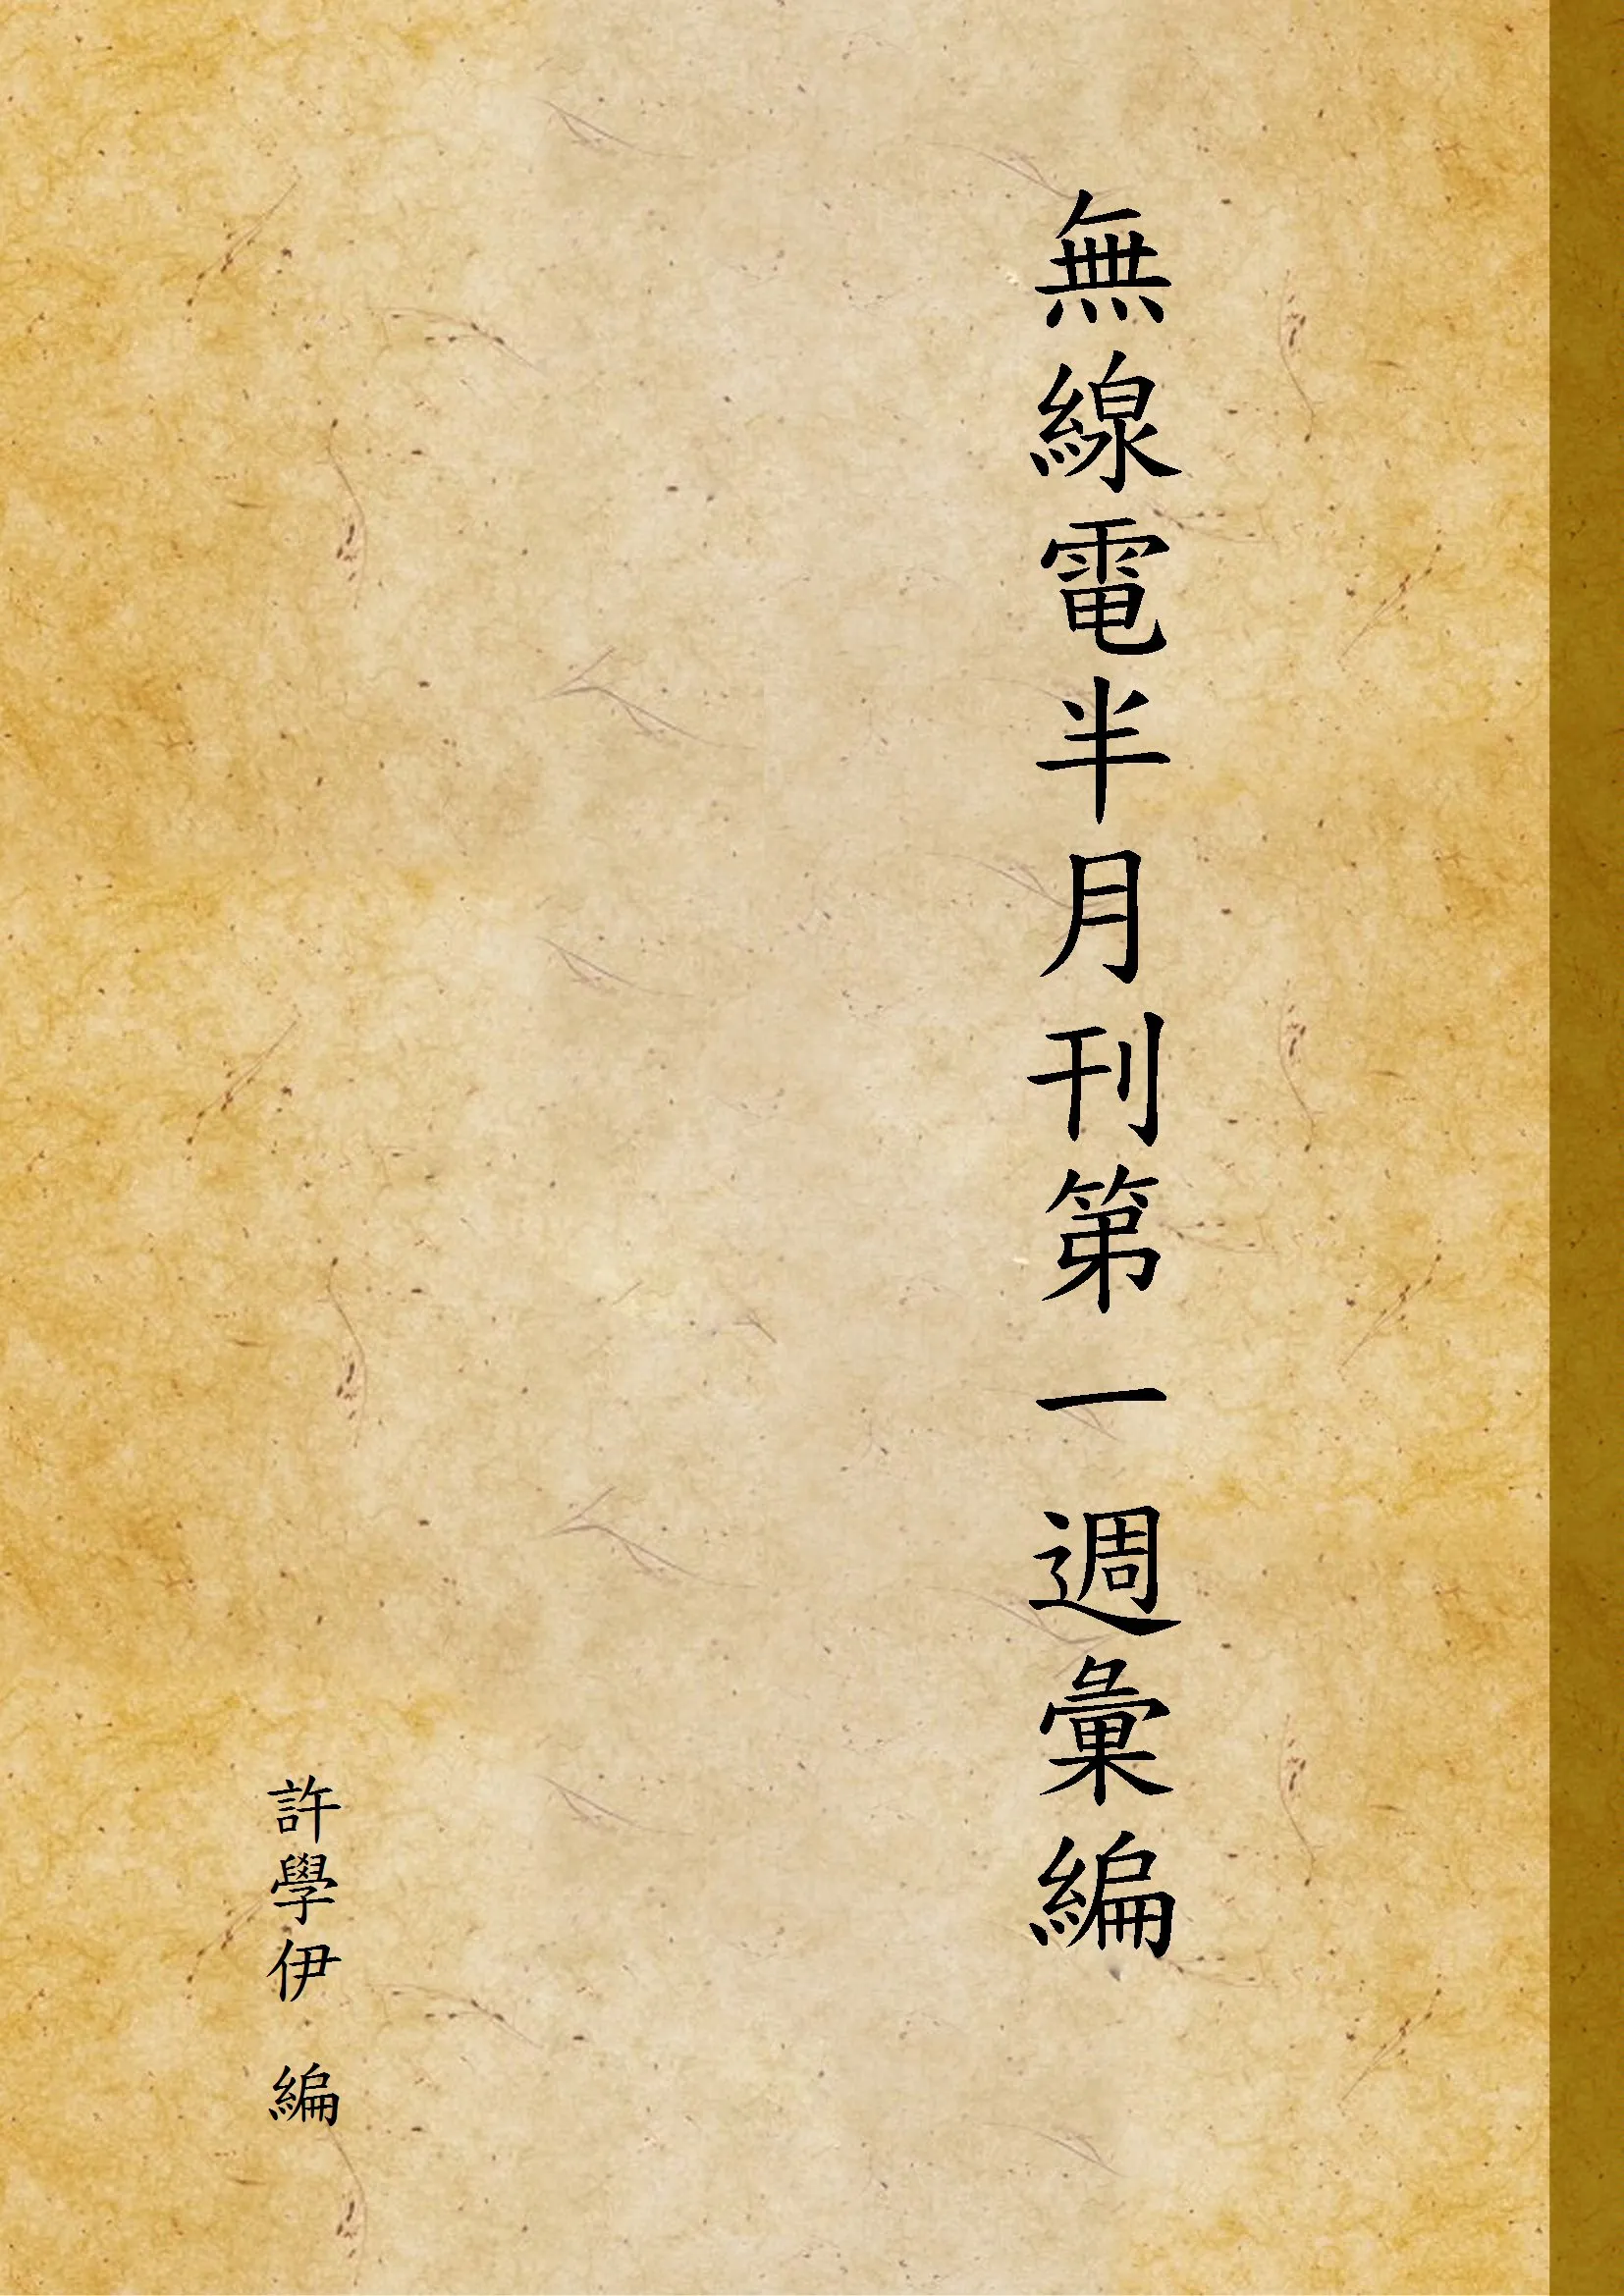 無線電半月刊第一週彙編
許學伊 編